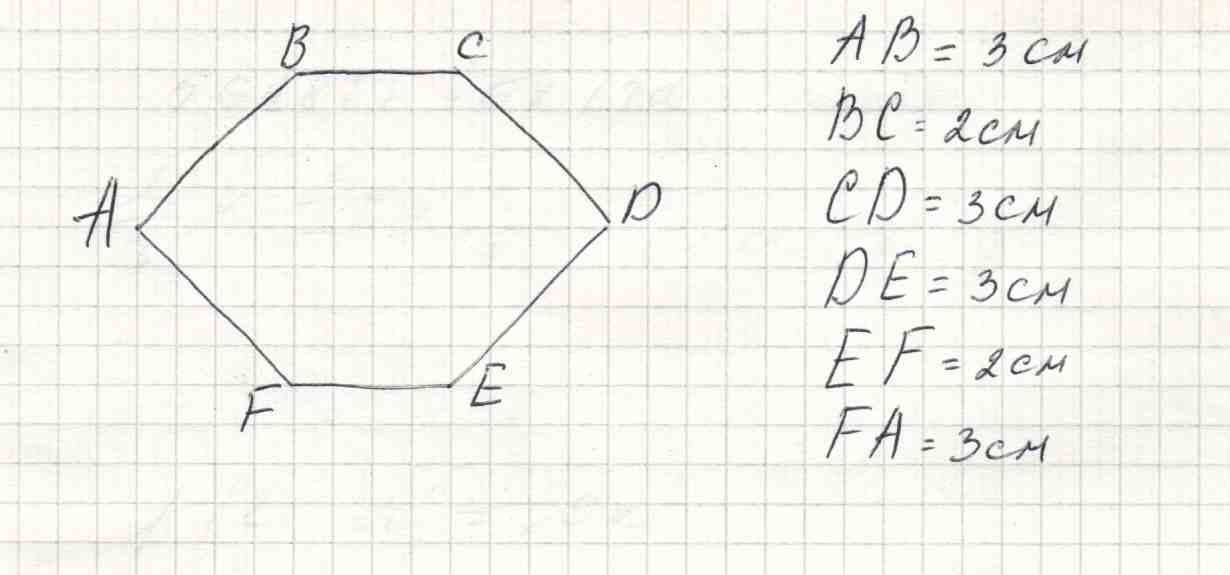 B C
A D
F E
AB = 3 см
BC = 2 см
CD = 3 см
DE = 3 см
EF = 2 см
FA = 3 см